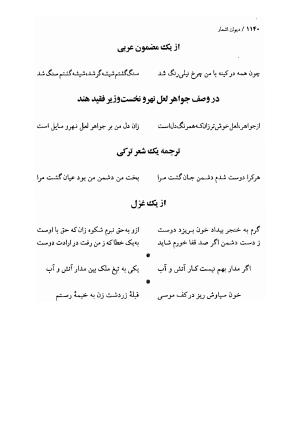 ۱۱۴۰ / دیوان اشعار
از یک مضمون عربی
چون همه در کینه با من چرخ نیلی رنگ شد سنگ گشتم شیشه گر شد، شیشه گشتم سنگ شد
در وصف جواهر لعل نهرو نخست وزیر فقید هند
از جواهر، لعل خوش تر زان که همرنگ دل است زان دل من بر جواهر لعل نهرو مایل است
ترجمه یک شعر ترکی
هرکرا دوست شدم دشمن جان گشت مرا بخت من دشمن من بود عیان گشت مرا
از یک غزل
گرم به خنجر بیداد خون بریزد دوست ازو به حق نبرم شکوه زان که حق با اوست
ز دست دشمن اگر صد قفا خورم شاید به یک خطا که ز من رفت در ارادت دوست
اگر مدار بهم نیست کار آتش و آب یکی به تیغ ملک بین مدار آتش و آب
خون سیاوش ریز در کف موسی قبلهٔ زردشت زن به خیمهٔ رستم